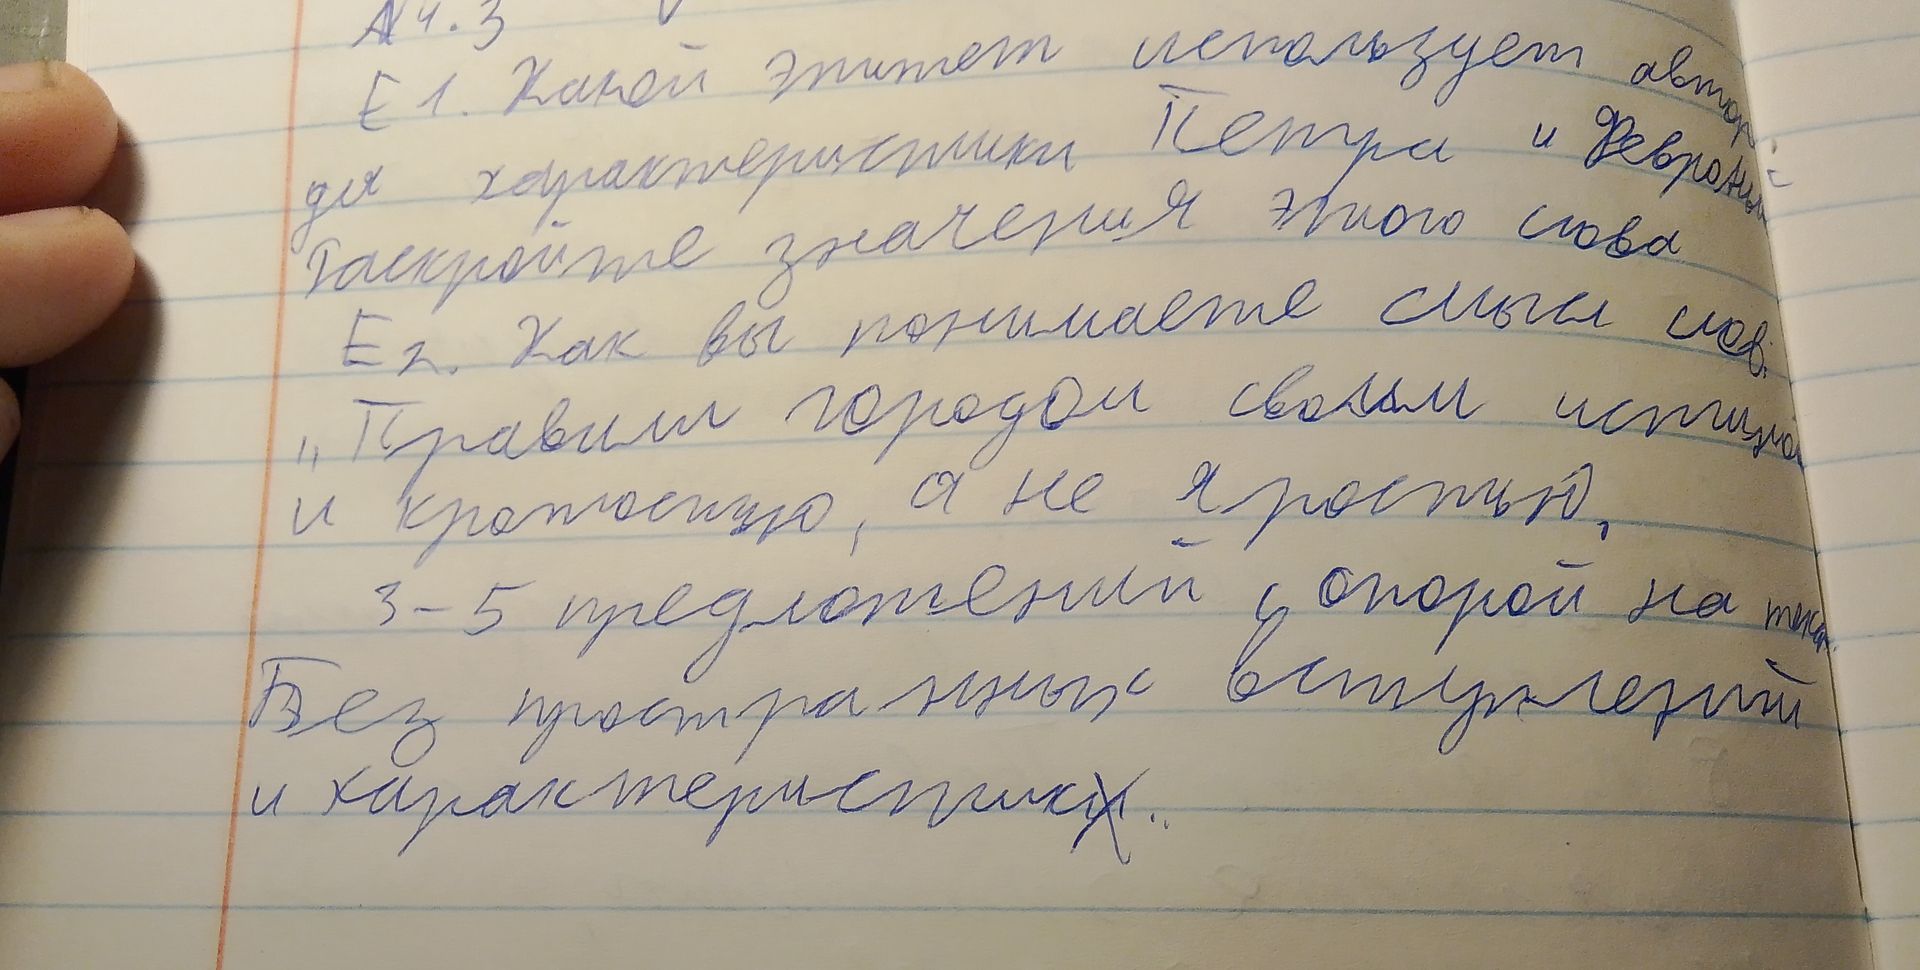 Ч.3
Е1. Какой эпитет использует автор
для характеристики Петра и Февронии
Раскройте значения этого слова
Е2. Как вы понимаете смысл слов:
"Правили городом своим истиной
и кротостью, а не яростью,
3-5 предложений с опорой на текст.
Без пространных вступлений
и характеристик.